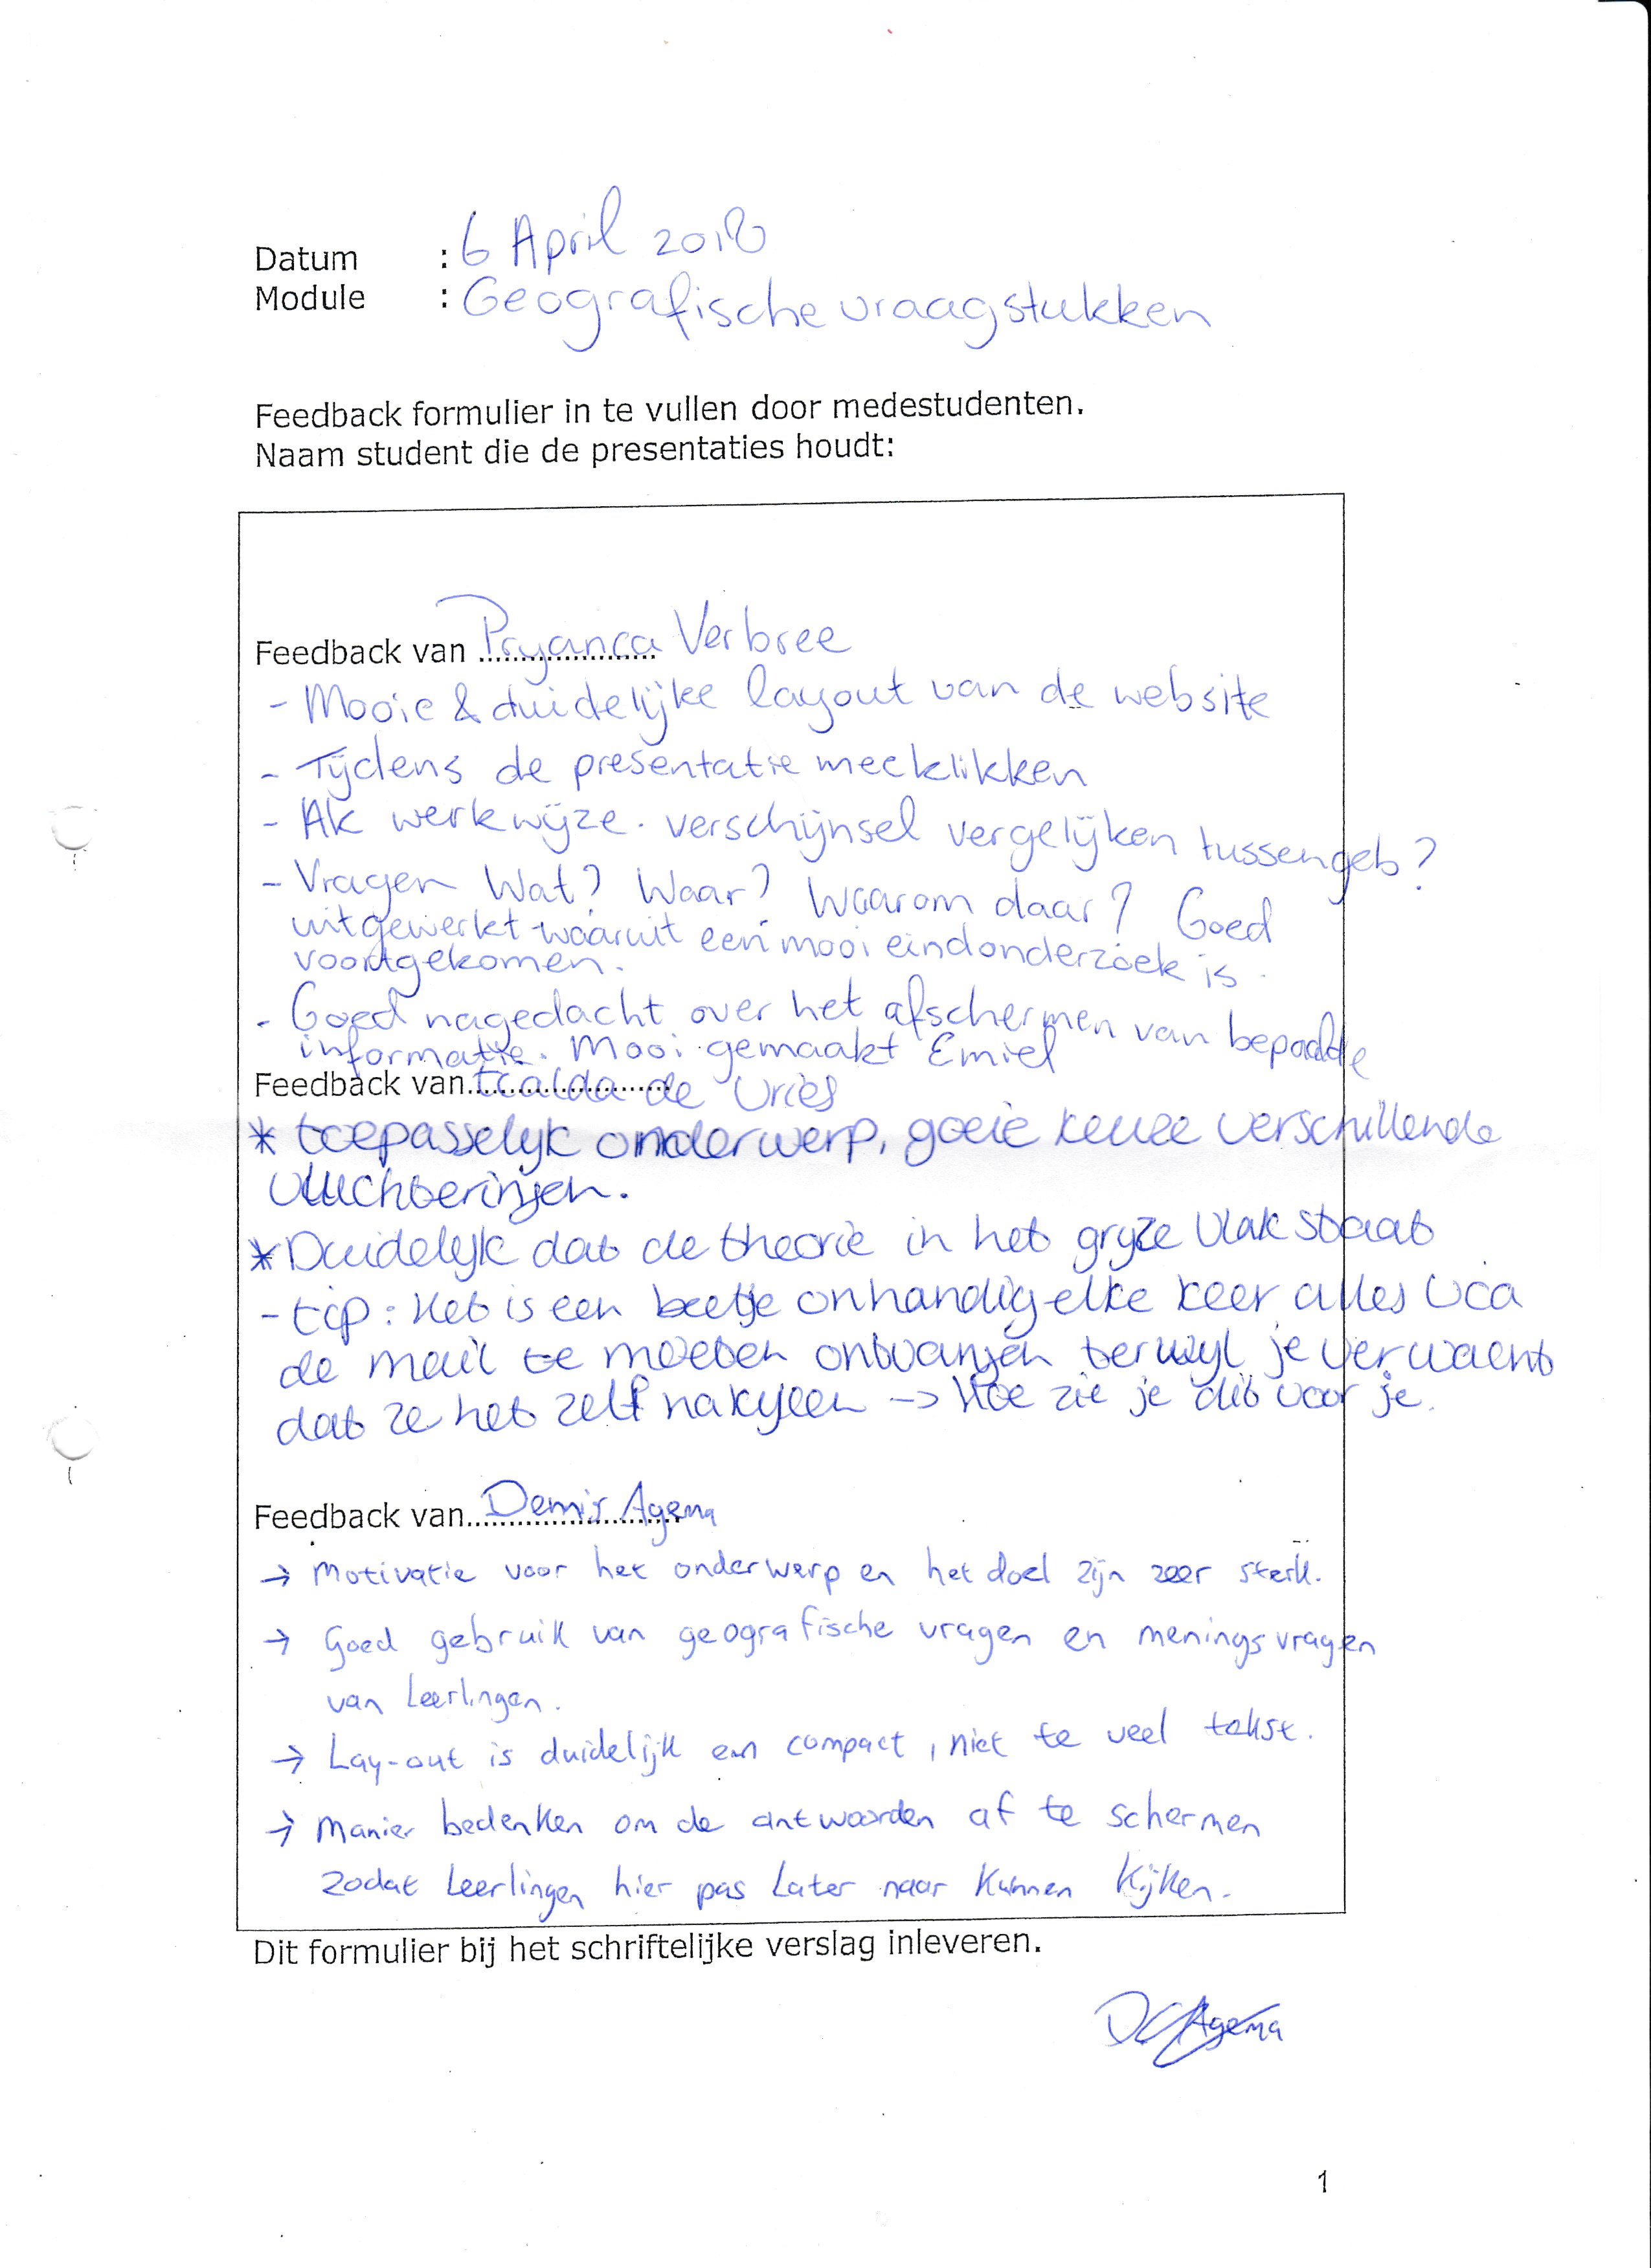 Datum : 6 April 2018
Module : Geografische vraagstukken
Feedback formulier in te vullen door medestudenten.
Naam student die de presentaties houdt:
Feedback van Pryanca Verbree
- Mooie & duidelijke layout van de website
- Tijdens de presentatie meeklikken
- AK werkwijze. verschijnsel vergelijken tussen geb?
- Vragen Wat? Waar? Waarom daar? Goed
uitgewerkt waaruit een mooi eindonderzoek is
voortgekomen.
- Goed nagedacht over het afschermen van bepaalde
informatie. Mooi gemaakt Emiel
Feedback van de Vries
* toepasselijk onderwerp, goeie keuze verschillende
vluchtelingen.
* Duidelijk dat de theorie in het grijze vlak staat
- tip: Het is een beetje onhandig elke keer alles via
de mail te moeten ontvangen terwijl je verwacht
dat ze het zelf nakijken -> Hoe zie je dit voor je.
Feedback van Demis Agema
→ Motivatie voor het onderwerp en het doel zijn zeer sterk.
→ Goed gebruik van geografische vragen en meningsvragen
van Leerlingen.
→ Lay-out is duidelijk en compact, niet te veel tekst.
→ Manier bedenken om de antwoorden af te schermen
zodat Leerlingen hier pas Later naar kunnen kijken.
Dit formulier bij het schriftelijke verslag inleveren.
Agema
1